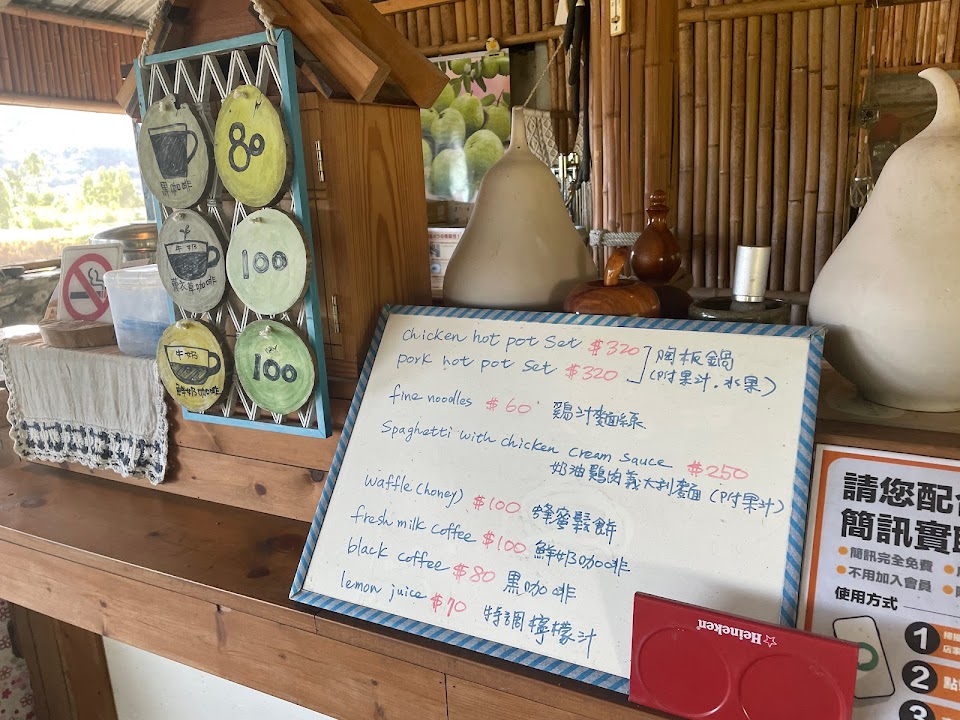 黑咖啡
80
牛奶
薰衣草咖啡
100
牛奶
鮮奶咖啡
100
Chicken hot pot Set $320
pork hot pot Set $320
陶板鍋
(附果汁.水果)
fine noodles $60 鷄汁麵線
Spaghetti with chicken cream sauce $250
奶油鷄肉義大利麵(附果汁)
Waffle(honey) $100 蜂蜜鬆餅
fresh milk coffee $100 鮮奶咖啡
black coffee $80 黑咖啡
lemon juice $70 特調檸檬汁
Heineken
請您配合
簡訊實聯
簡訊完全免費
不用加入會員
使用方式
1
2 點
3